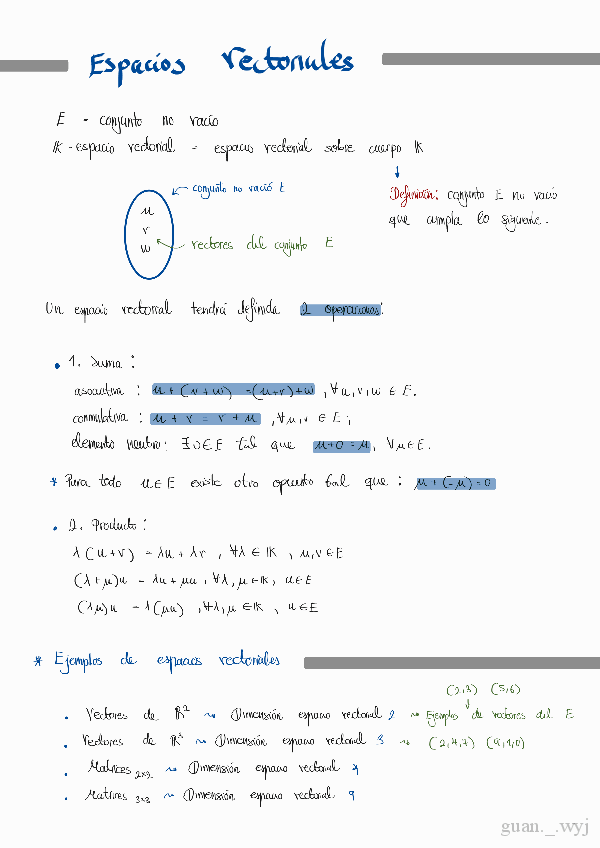 Espacios vectoriales
E - conjunto no vacío
IK - espacio vectorial = espacio vectorial sobre cuerpo IK
conjunto no vació E
Definición: conjunto E no vacio
que cumpla lo siguiente.
u
v
w
vectores del conjunto E
Un espacio vectorial tendrá definida 2 operaciones:
• 1. Suma:
asociativa: u + (v + w) = (u+v)+w, ∀u,v,w ∈ E.
conmutativa: u + v = v + u, ∀u,v ∈ E;
elemento neutro: ∃ 0 ∈ E tal que u+0 = u, ∀u ∈ E.
* Para todo u ∈ E existe otro opuesto tal que: u + (-u) = 0
• 2. Producto:
λ(u+v) = λu + λv, ∀λ ∈ IK, u,v ∈ E
(λ+μ)u = λu + μu, ∀λ,μ ∈ IK, u ∈ E
(λμ)u = λ(μu), ∀λ,μ ∈ IK, u ∈ E
* Ejemplos de espacios vectoriales
(2,3) (5,6)
• Vectores de ℝ² ⇝ Dimensión espacio vectorial 2 ⇝ Ejemplo de vectores del E
• Vectores de ℝ³ ⇝ Dimensión espacio vectorial 3 ⇝ (2,7,7) (9,1,0)
• Matrices 2x2 ⇝ Dimensión espacio vectorial 4
• Matrices 3x3 ⇝ Dimensión espacio vectorial 9
guan._.wyj